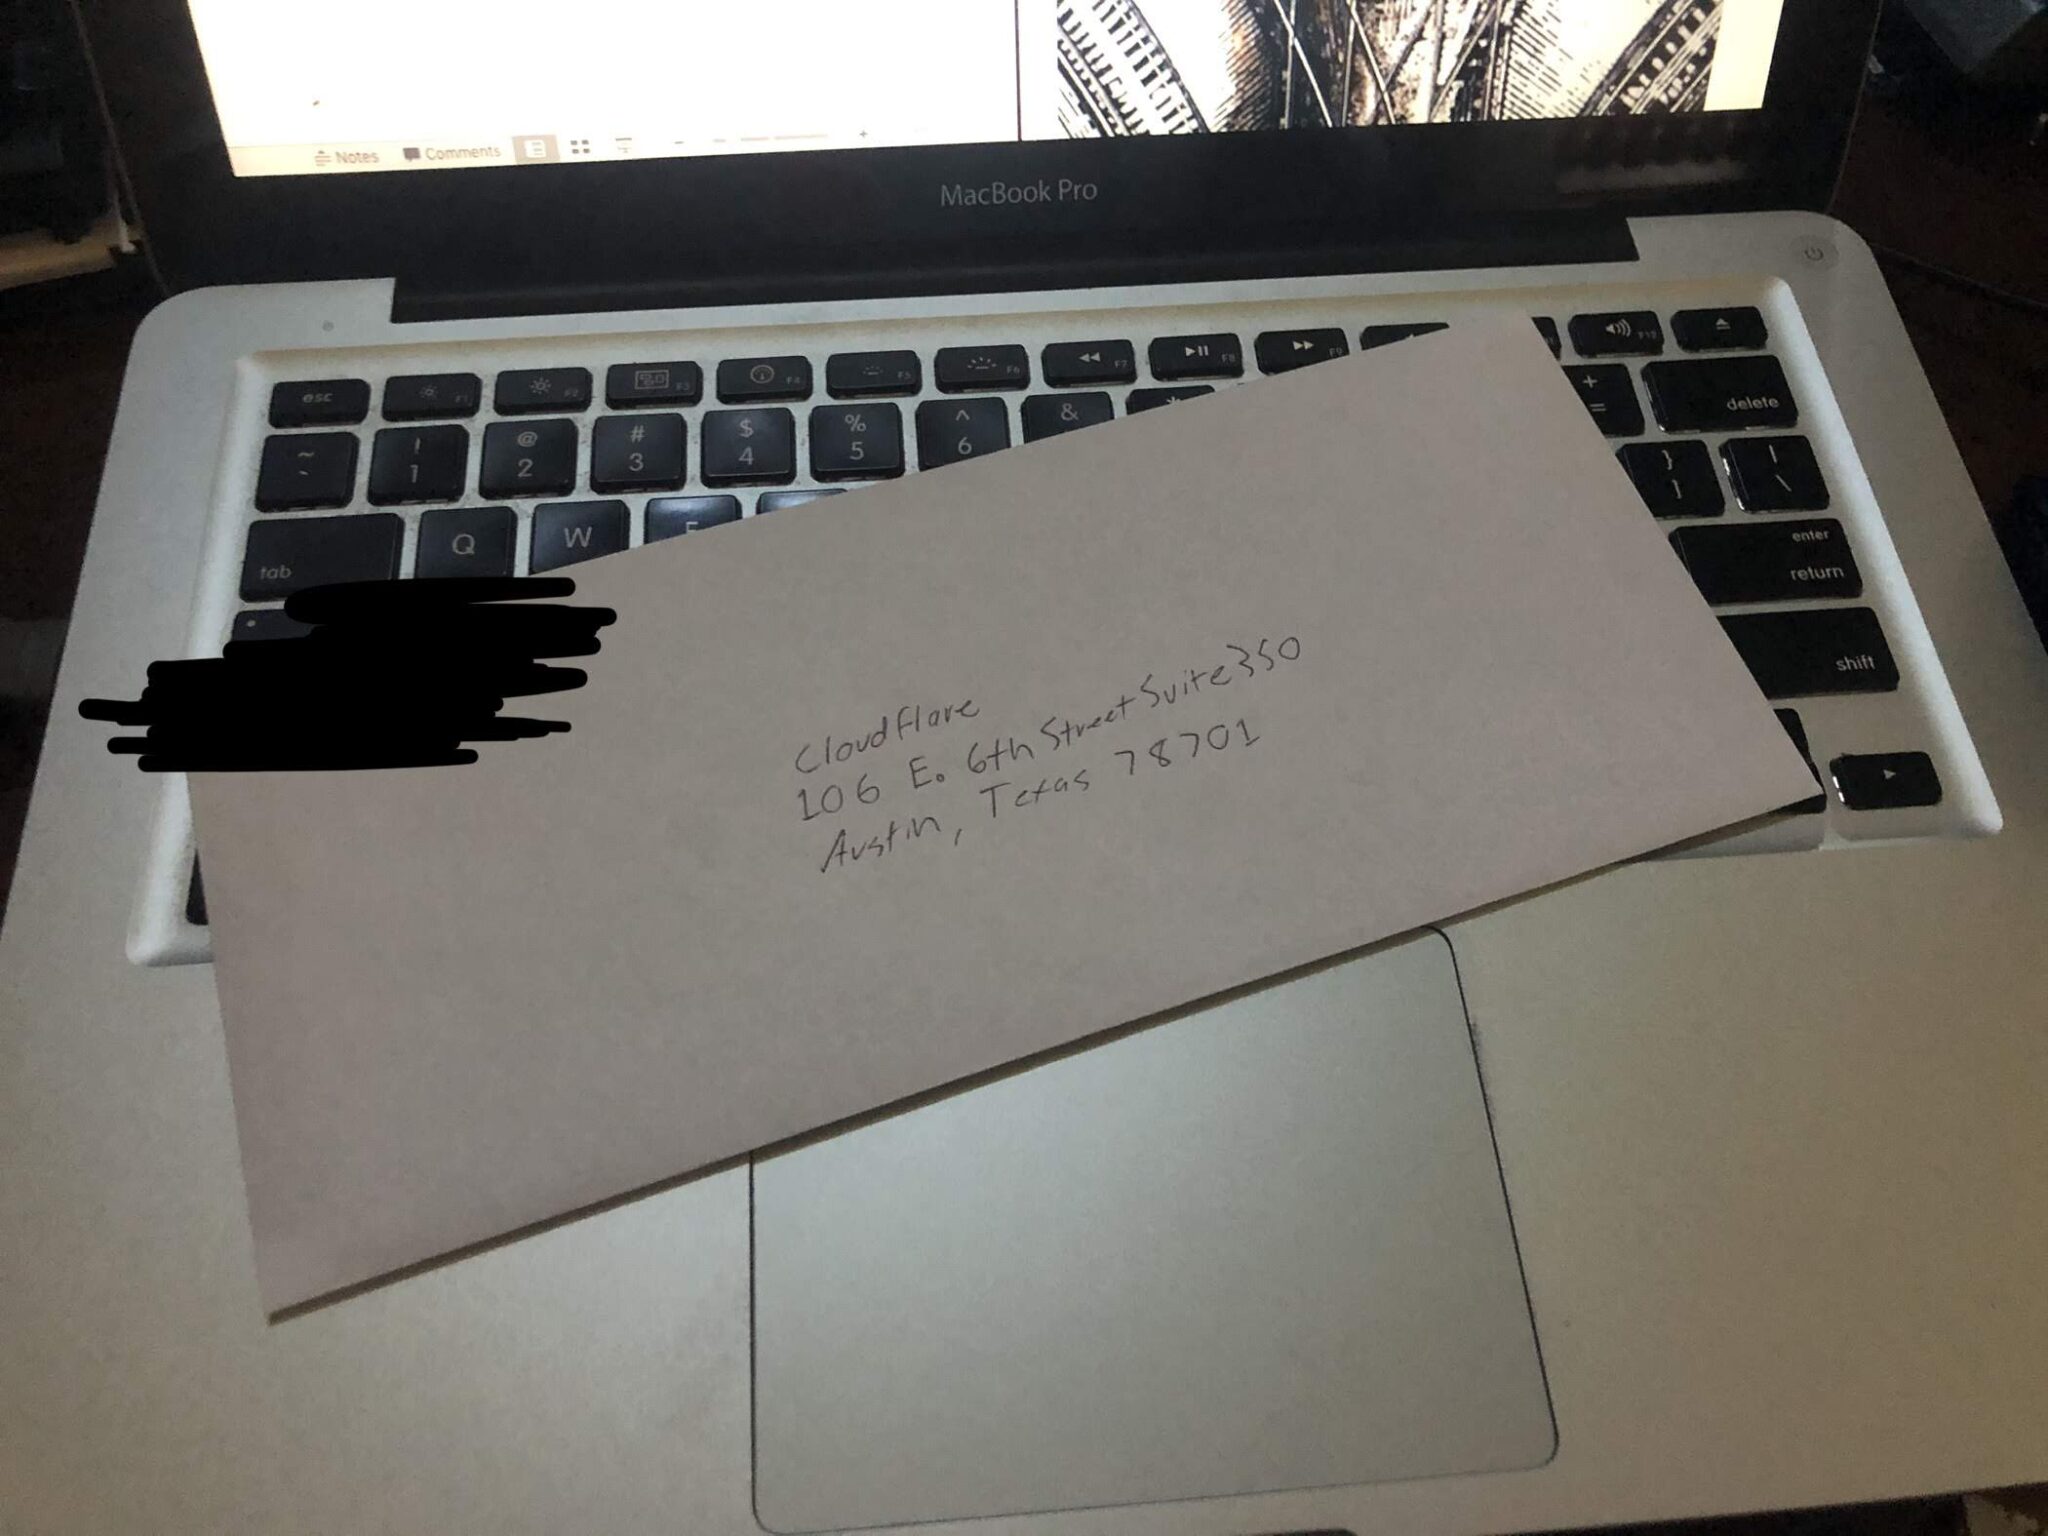 Notes Comments
MacBook Pro
esc F1 F2 F3 F4 F5 F6 F7 F8 F9 F12
~ ` ! 1 @ 2 # 3 $ 4 % 5 ^ 6 & * + = delete
tab Q W E } ] | \
enter
return
shift
Cloudflare
106 E. 6th Street Suite 350
Austin, Texas 78701